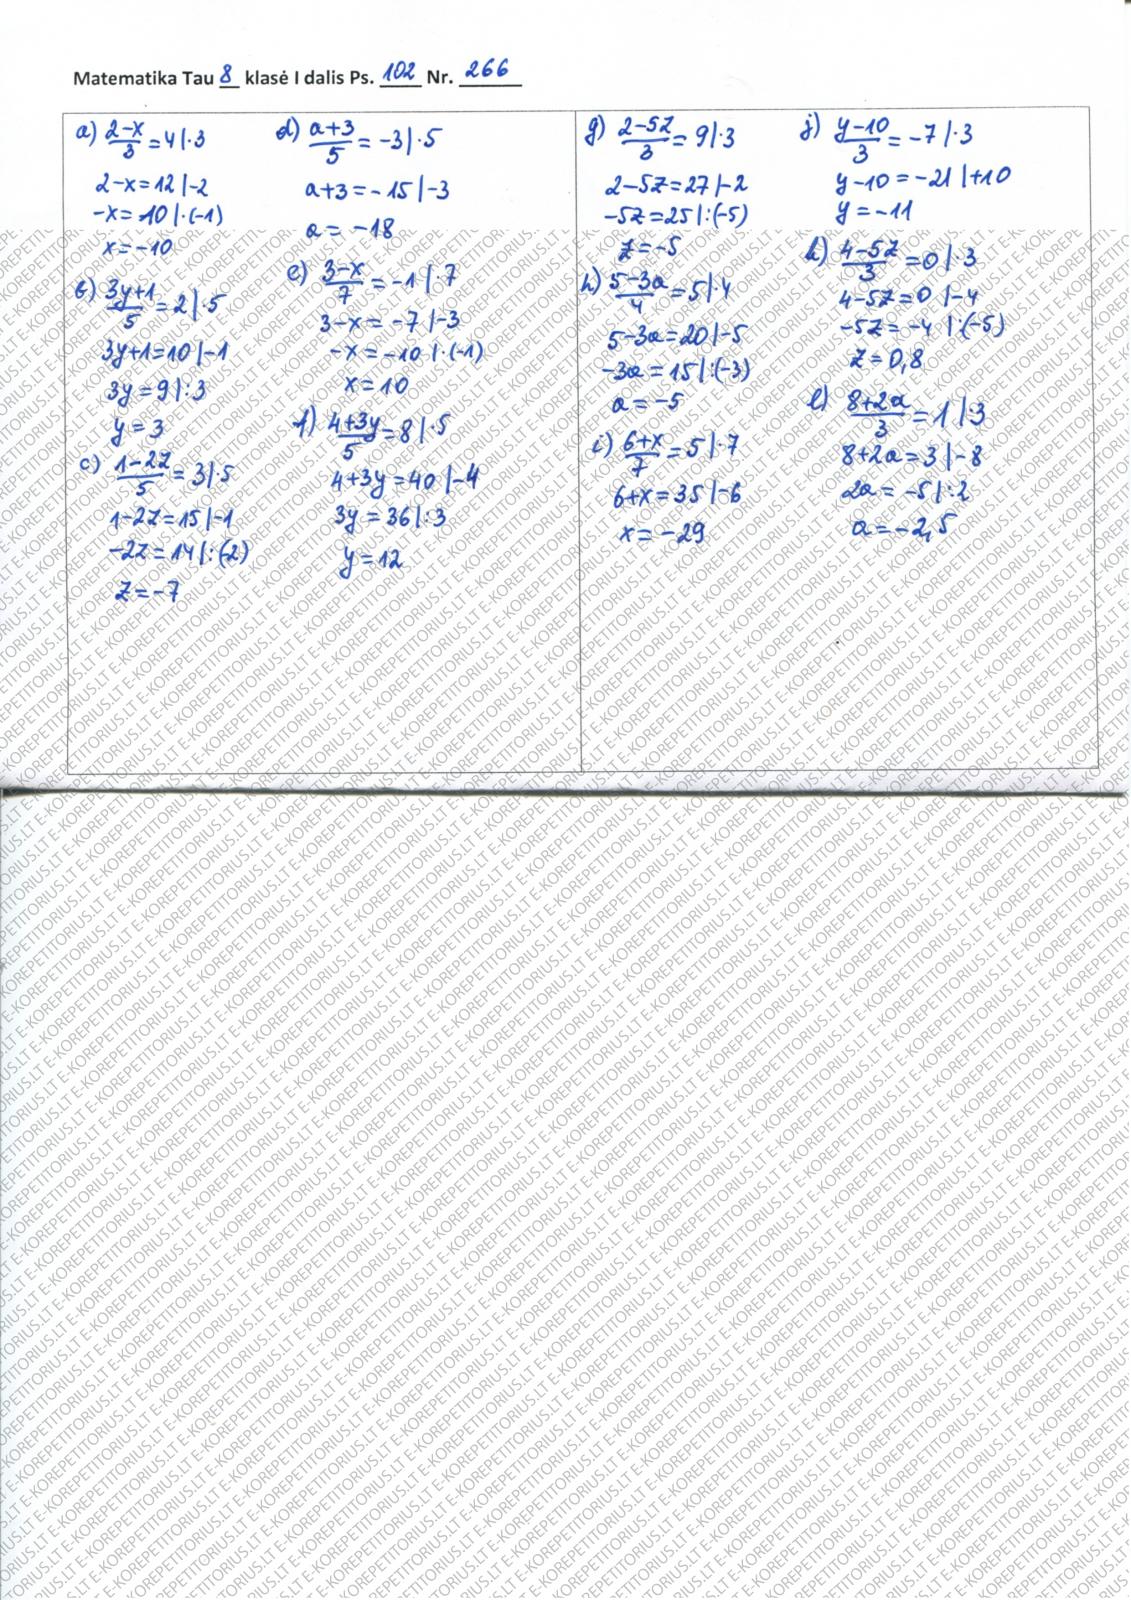 Matematika Tau 8 klasė I dalis Ps. 102 Nr. 266
a) (2-x)/3 = 4 |·3
2-x=12 |-2
-x=10 |·(-1)
x=-10
b) (3y+1)/5 = 2 |·5
3y+1=10 |-1
3y=9 |:3
y=3
c) (1-2z)/5 = 3 |·5
1-2z=15 |-1
-2z=14 |:(-2)
z=-7
d) (a+3)/5 = -3 |·5
a+3=-15 |-3
a=-18
e) (3-x)/7 = -1 |·7
3-x=-7 |-3
-x=-10 |·(-1)
x=10
f) (4+3y)/5 = 8 |·5
4+3y=40 |-4
3y=36 |:3
y=12
g) (2-5z)/3 = 9 |·3
2-5z=27 |-2
-5z=25 |:(-5)
z=-5
h) (5-3a)/4 = 5 |·4
5-3a=20 |-5
-3a=15 |:(-3)
a=-5
i) (6+x)/7 = 5 |·7
6+x=35 |-6
x=-29
j) (y-10)/3 = -7 |·3
y-10=-21 |+10
y=-11
k) (4-5z)/3 = 0 |·3
4-5z=0 |-4
-5z=-4 |:(-5)
z=0,8
l) (8+2a)/3 = 1 |·3
8+2a=3 |-8
2a=-5 |:2
a=-2,5
E-KOREPETITORIUS.LT